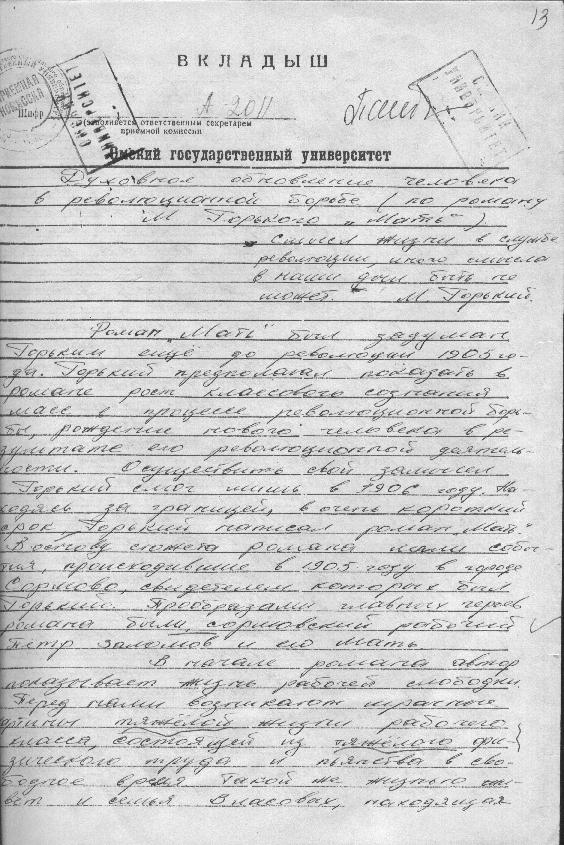 13
ВКЛАДЫШ
Шифр А-2011
(заполняется ответственным секретарем
приемной комиссии
Омский государственный университет
Духовное обновление человека
в революционной борьбе (по роману
М Горького „Мать")
Смысл жизни в службе
революции, иного смысла
в наши дни быть не
может. М Горький.
Роман „Мать" был задуман
Горьким ещё до революции 1905 го-
да. Горький предполагал показать в
романе рост классового сознания
масс в процессе революционной борь-
бы, рождение нового человека в ре-
зультате его революционной деятель-
ности. Осуществить свой замысел
Горький смог лишь в 1906 году. На-
ходясь за границей, в очень короткий
срок Горький написал роман „Мать"
В основу сюжета романа легли собы-
тия, происходившие в 1905 году в городе
Сормово, свидетелем которых был
Горький. Прообразами главных героев
романа были, сормовский рабочий
Пётр Заломов и его мать
В начале романа автор
показывает жизнь рабочей слободки.
Перед нами возникают мрачные
картины тяжёлой жизни рабочего
класса, состоящей из тяжёлого фи-
зического труда и пьянства в сво-
бодное время Такой же жизнью жи-
вёт и семья Власовых, находящая